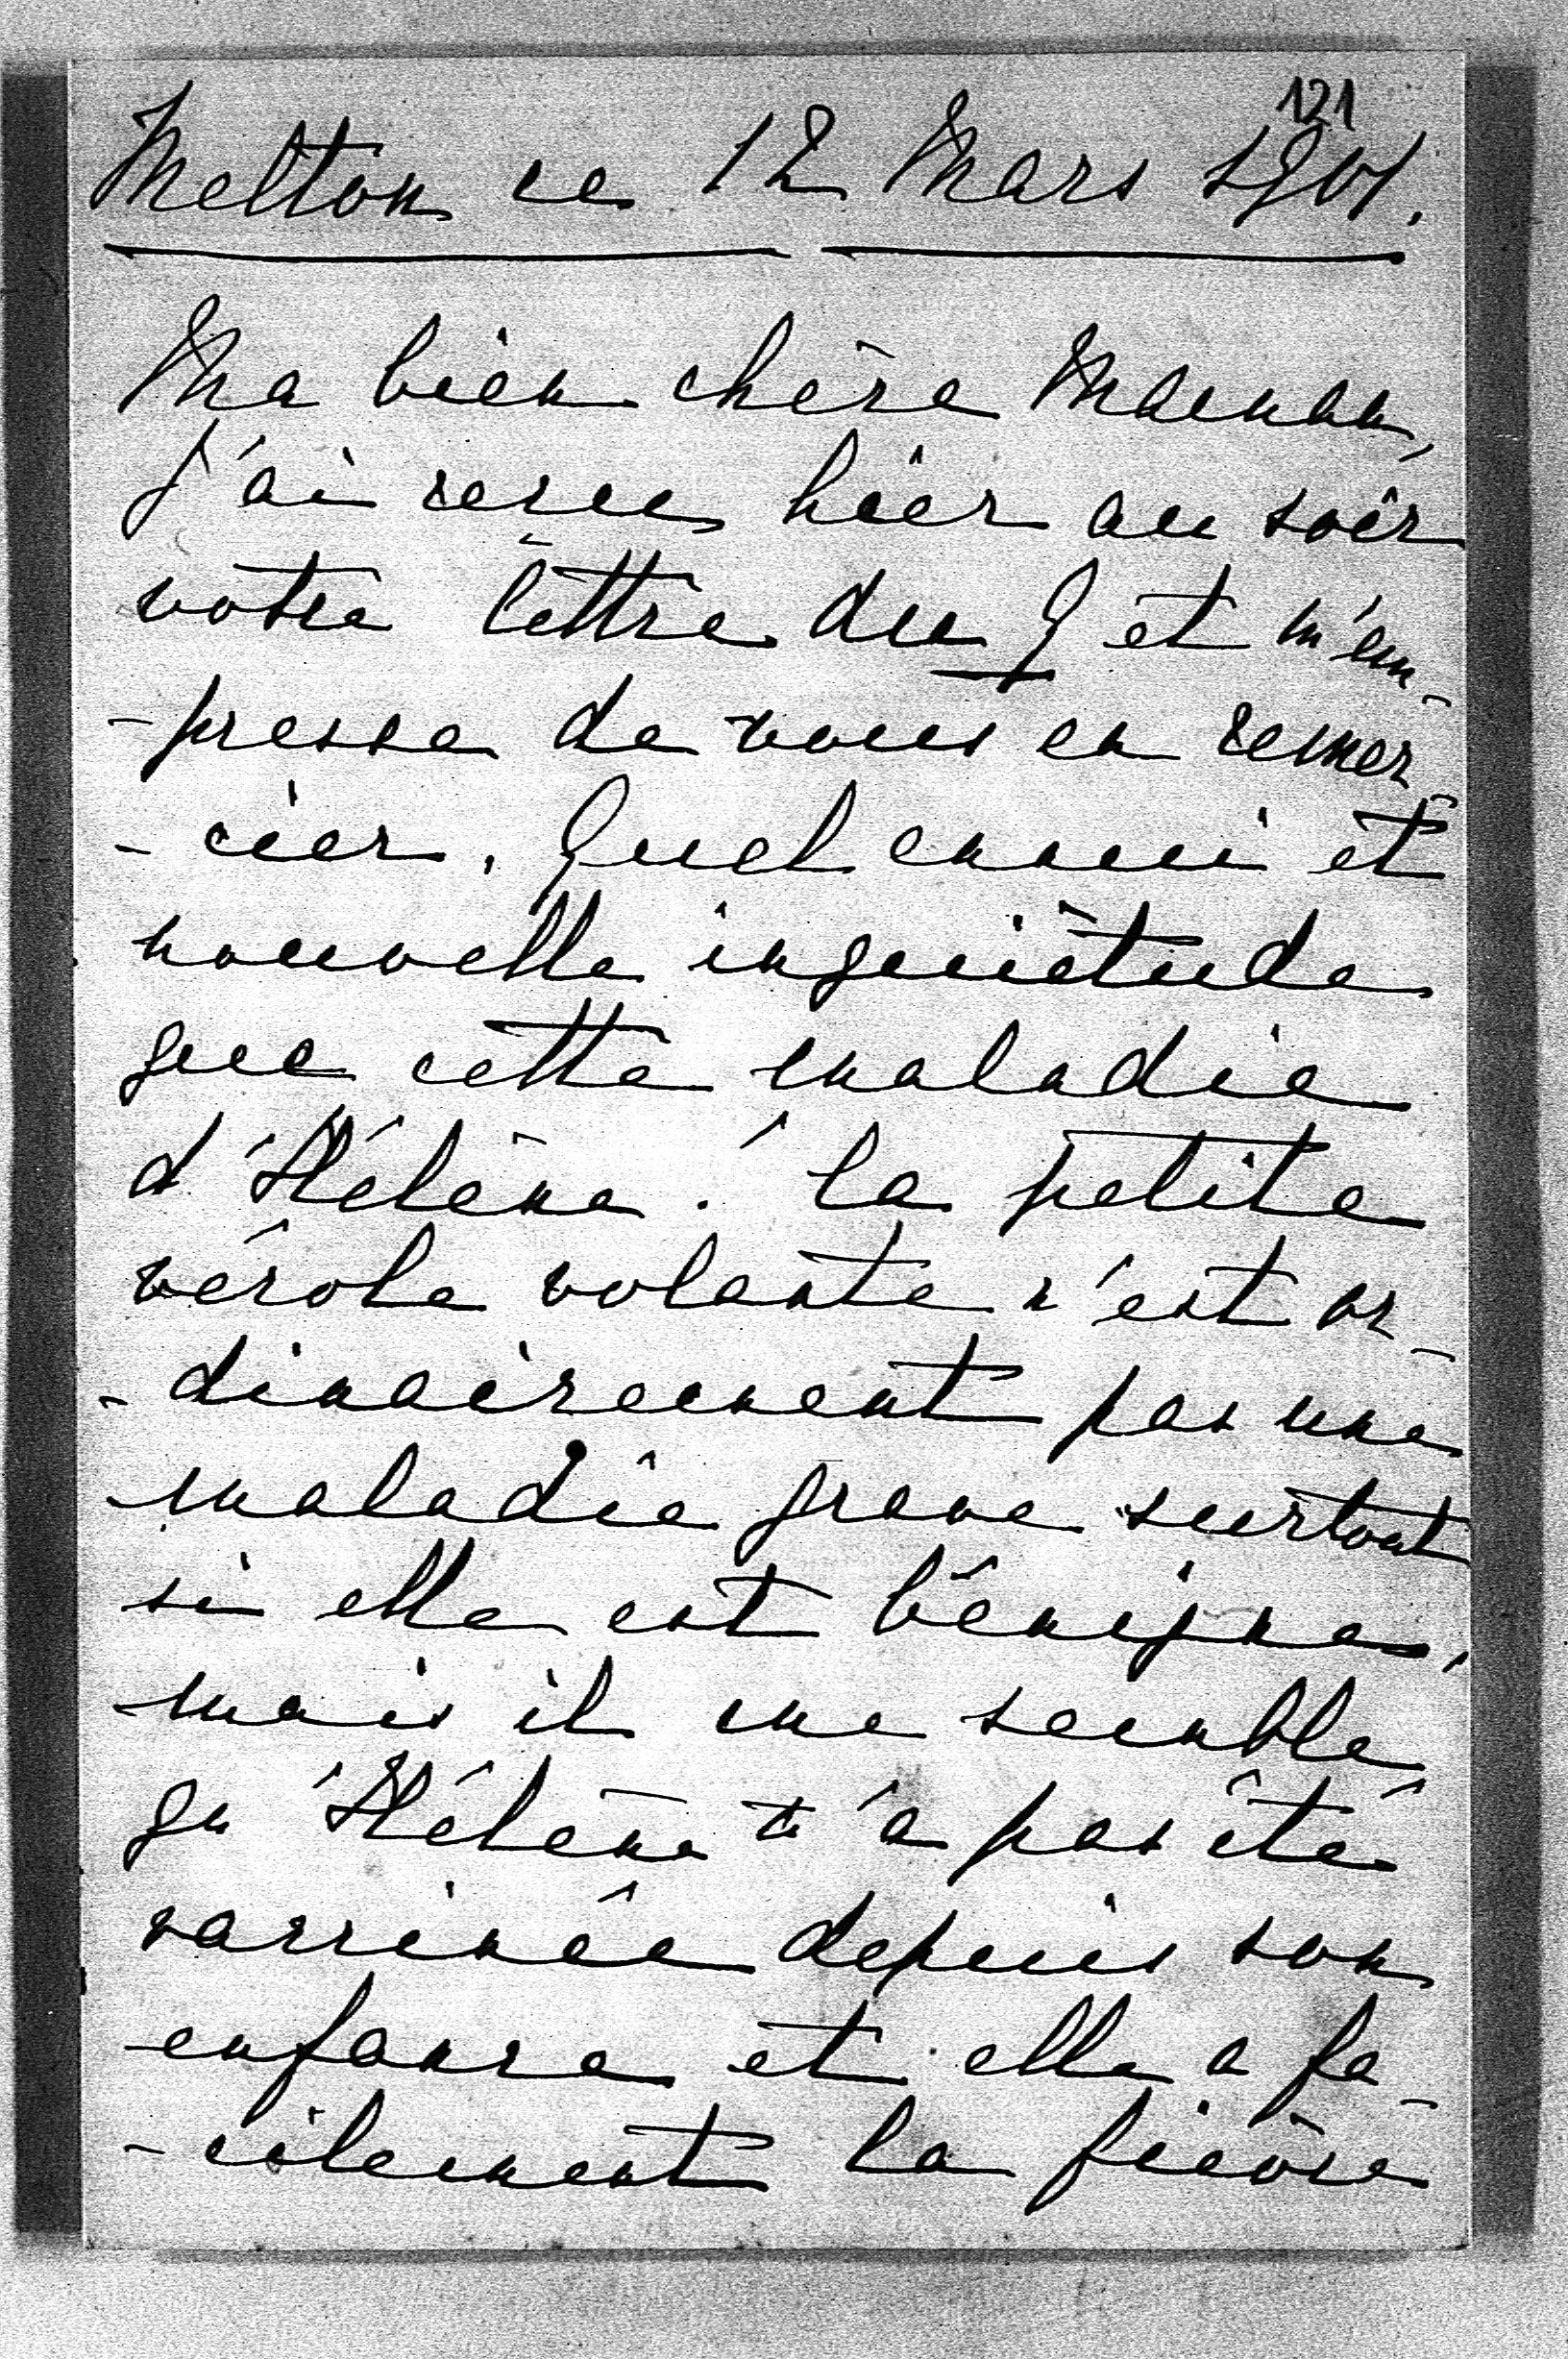 121
Melton ce 12 Mars 1901.
Ma bien chère Maman,
J'ai reçu hier au soir
votre lettre du 9 et m'em-
-presse de vous en remer-
-cier. Quel ennui et
nouvelle inquiétude
que cette maladie
d'Hélène! la petite
vérole volante n'est or-
-dinairement pas une
maladie grave surtout
si elle est bénigne,
mais il me semble
qu'Hélène n'a pas été
vaccinée depuis son
enfance et elle a fa-
-cilement la fièvre